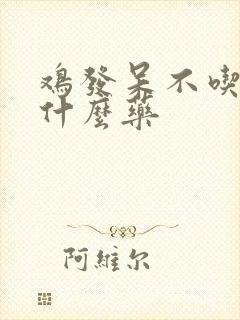 鸡發呆不喫
什麼藥
阿維尔